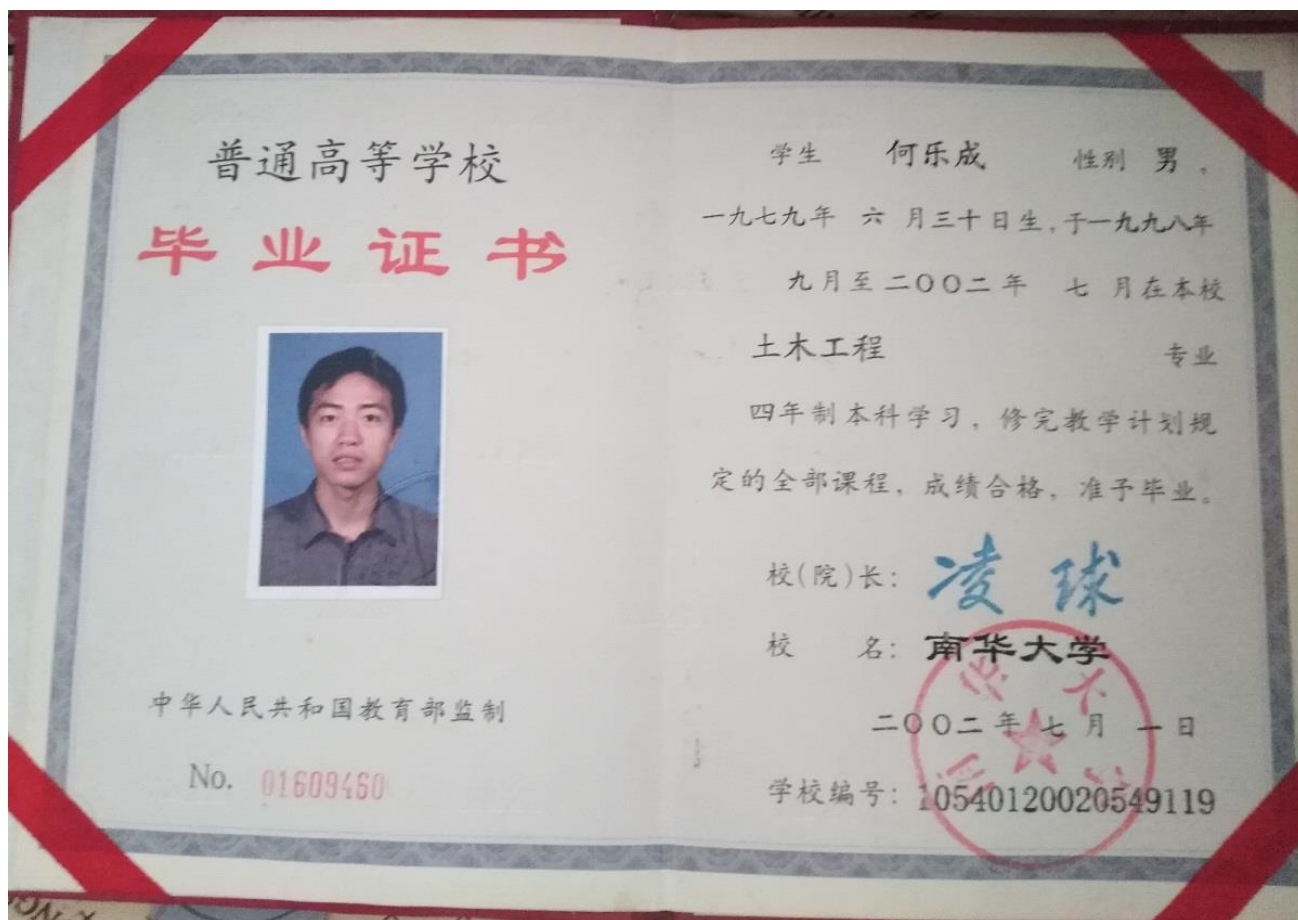 普通高等学校
毕业证书
中华人民共和国教育部监制
No. 01609460
学生 何乐成 性别 男，
一九七九年 六 月三十日生，于一九九八年
九月至二〇〇二年 七 月在本校
土木工程 专业
四年制本科学习，修完教学计划规
定的全部课程，成绩合格，准予毕业。
校(院)长：凌球
校 名：南华大学
二〇〇二年 七 月 一 日
学校编号：105401200205​49119